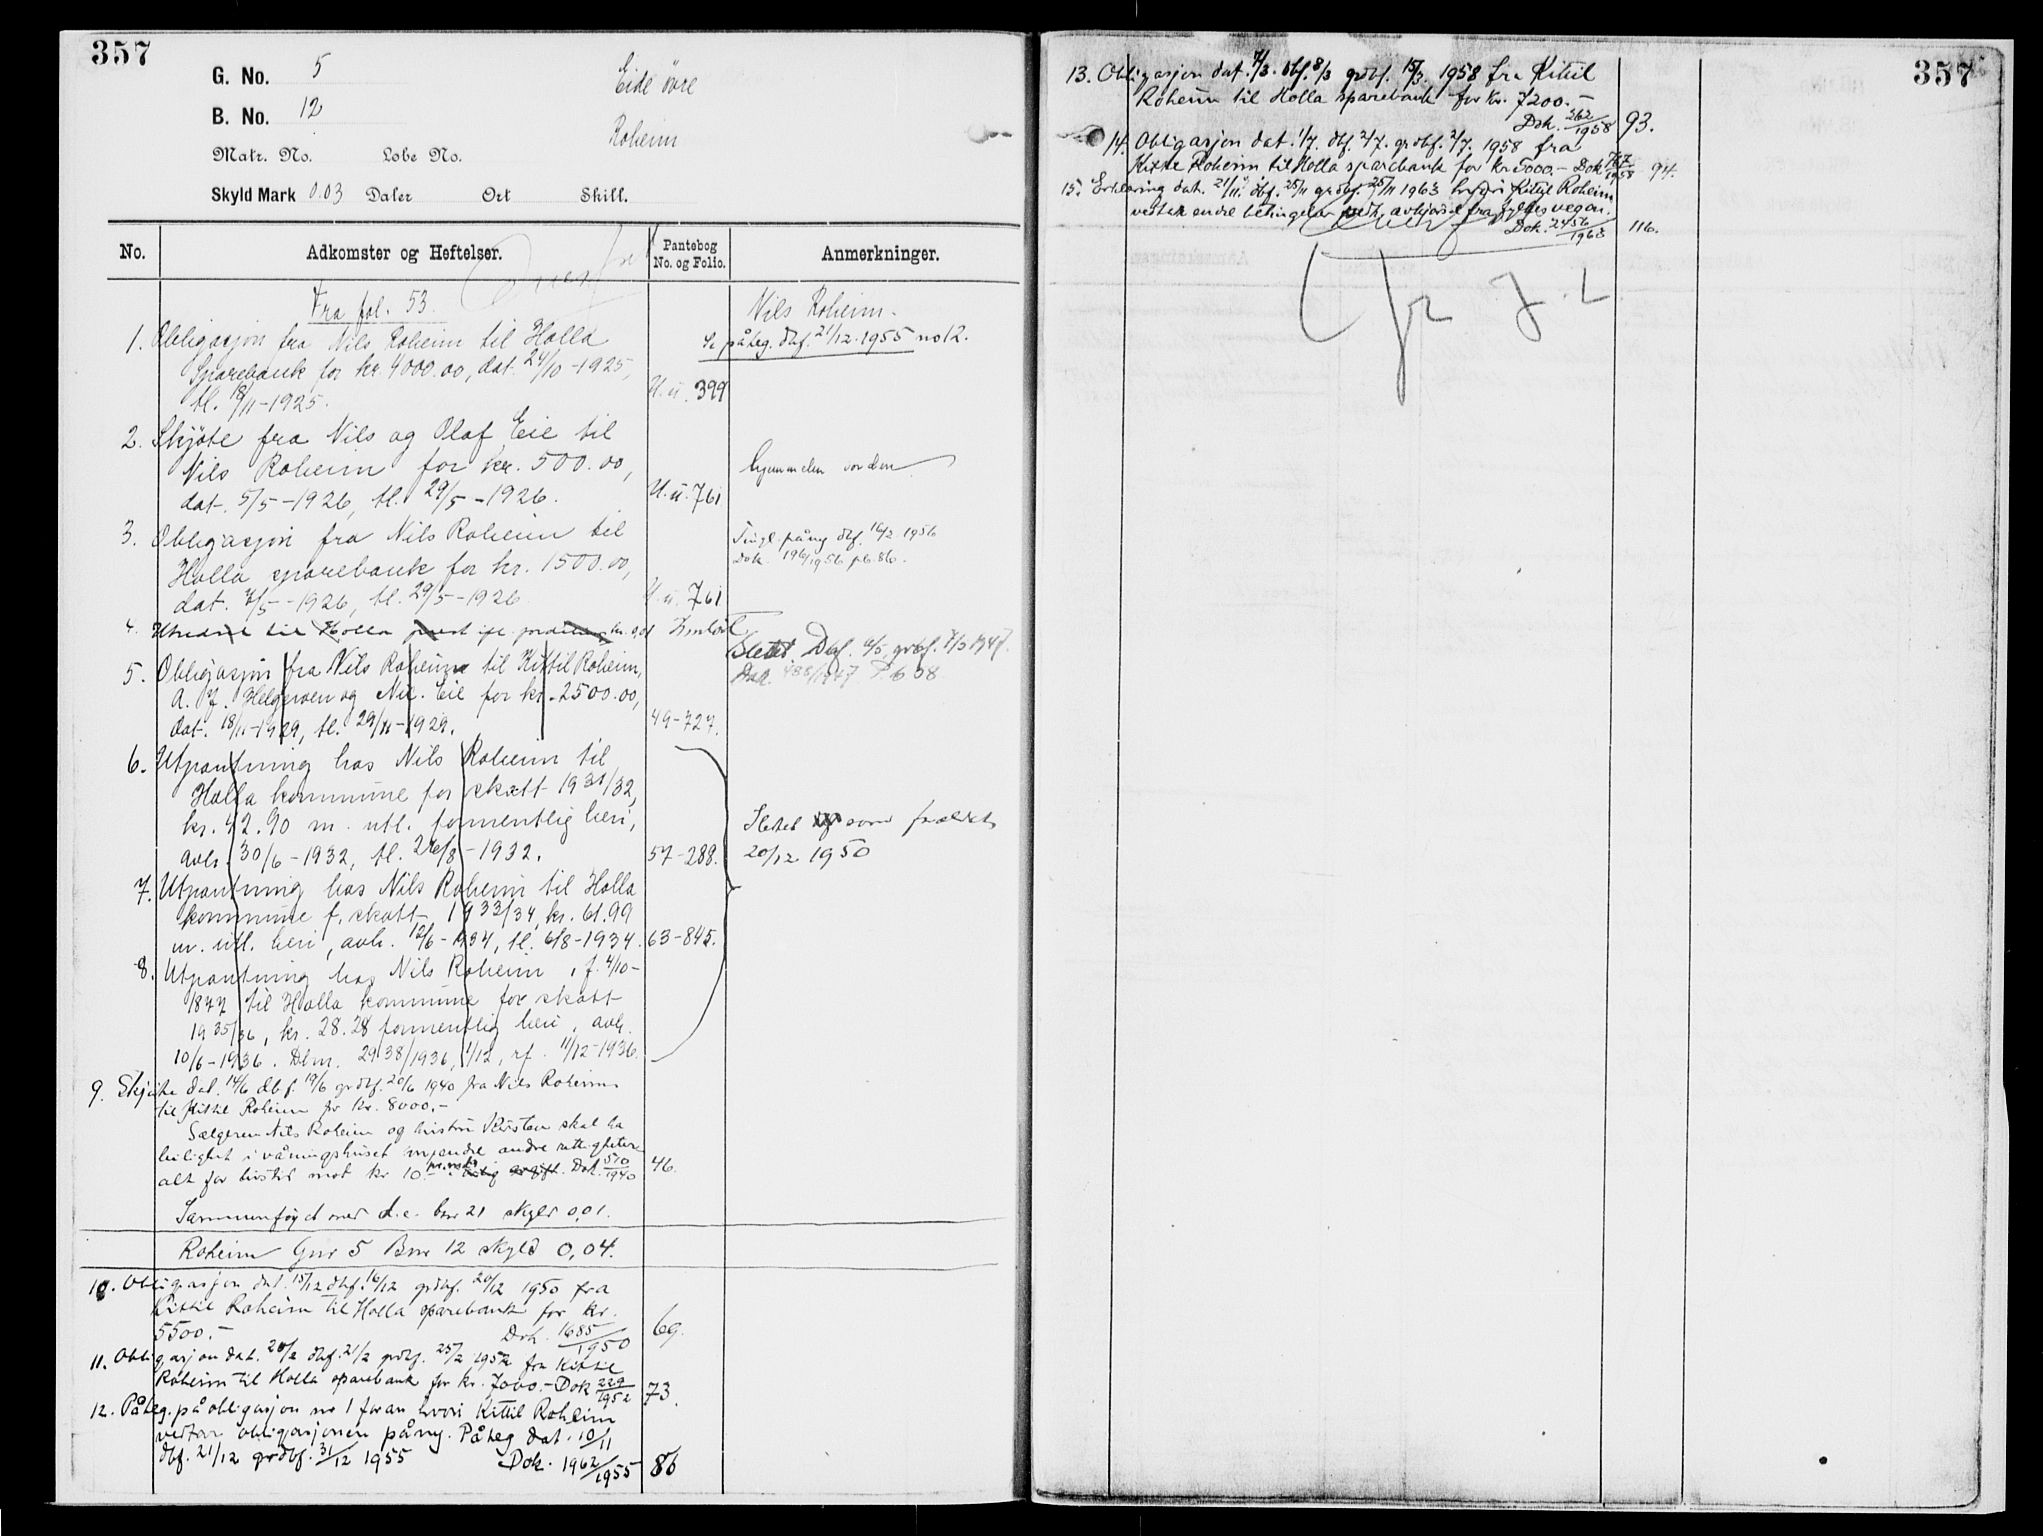 357
G. No. 5
Eide övre
B. No. 12
Roheim
Matr. No. Løbe No.
Skyld Mark 0.03 Daler Ort Skill.
No. Adkomster og Heftelser. Pantebog No. og Folio. Anmerkninger.
Fra fol. 53.
Nils Roheim.
Se påteg. dbf. 21/12.1955 no 12.
1. Obligasjon fra Nils Roheim til Holla
Sparebank for kr. 4000.00, dat. 24/10-1925,
tl. 18/11-1925. U.ü. 399
2. Skjöte fra Nils og Olaf Eie til
Nils Roheim for kr. 500.00,
dat. 5/5-1926, tl. 29/5-1926. U.ü. 761
3. Obligasjon fra Nils Roheim til
Holla sparebank for kr. 1500.00,
dat. 7/5-1926, tl. 29/5-1926. U.ü. 761
Tingl. på ny dbf. 16/2 1956
Dok. 196/1956 pb. 86.
4. til Holla kr. 0,01 Innløst
5. Obligasjon fra Nils Roheim til Kittil Roheim,
A. J. Helgeroen og Nic. Eie for kr. 2500.00,
dat. 18/11-1929, tl. 29/11-1929. 49-727.
Slettet Dbf. 6/5, grbf. 7/5 1947.
Dok. 488/1947 P.b 58
6. Utpantning hos Nils Roheim til
Holla kommune for skatt 1931/32,
kr. 42.90 m. utl. formentlig heri,
avh. 30/6-1932, tl. 26/8-1932. 57-288.
Slettet som foreldet
20/12 1950
7. Utpantning hos Nils Roheim til Holla
kommune f. skatt 1933/34, kr. 61.99
m. utl. heri, avh. 12/6-1934, tl. 6/8-1934. 63-845.
8. Utpantning hos Nils Roheim, f. 4/10-
1877 til Holla kommune for skatt
1935/36, kr. 28.28 formentlig heri, avh.
10/6-1936. Dbm. 2938/1936, 1/12, rf. 11/12-1936.
9. Skjöte dat. 14/6 dbf 19/6 grdbf. 20/6 1940 fra Nils Roheim
til Kittil Roheim for kr. 8000.-
Sælgeren Nils Roheim og hustru Kirsten skal ha
leilighet i våningshuset m/andre andre rettigheter
alt for livstid mot kr 10.- pr. mnd. årlig avgift. Dok. 510/1940 46.
Sammenföyd med d.e. bnr 21 skyld 0,01.
Roheim Gnr 5 Bnr 12 skyld 0,04.
10. Obligasjon dat. 15/12 dbf. 16/12 grdbf. 20/12 1950 fra
Kittil Roheim til Holla sparebank for kr.
5500.- Dok. 1685/1950 69.
11. Obligasjon dat. 20/2 dbf. 21/2 grdbf. 25/2 1952 fra Kittil
Roheim til Holla sparebank for kr. 7000.- Dok 229/1952 73.
12. Påteg. på obligasjon nr 1 foran hvori Kittil Roheim
vedtar obligasjonen på ny. Påteg dat. 10/11
dbf. 21/12 grdbf. 31/12 1955 Dok. 1962/1955 86
357
13. Obligasjon dat. 7/3. dbf. 8/3 grdbf. 15/3. 1958 fra Kittil
Roheim til Holla sparebank for kr. 7200.-
Dok. 262/1958 93.
14. Obligasjon dat. 1/7. dbf. 2/7. grdbf. 2/7. 1958 fra
Kittil Roheim til Holla sparebank for kr. 5000.- Dok 767/1958 94.
15. Erklæring dat. 21/11. dbf. 25/11 grdbf. 25/11 1963 hvori Kittil Roheim
vedtar endre betingelser vedk. avkjørsel fra fylkesvegen.
Dok. 2456/1963 116.